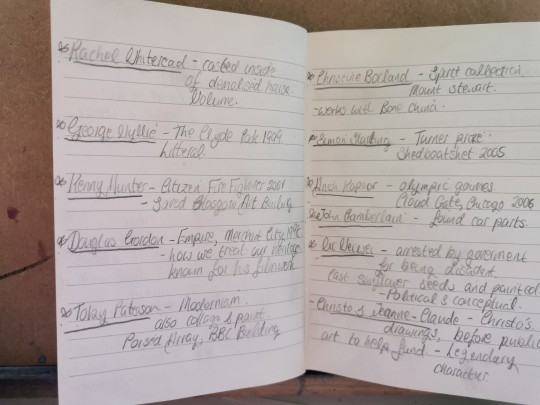 Rachel Whiteread - casted inside
of demolised house
Volume.
George Wyllie - The Clyde 1989.
Litteral.
Kenny Hunter - Citizen Fire Fighter 2001
- Glasgow Art
Douglas Gordon - Empire, Merchant City, 199
- how we treat our heritage
known for his filmwork
Toby Paterson - Modernism.
also collage & paint.
Poised Array, BBC Building
Christine Borland - Spirit collection
Mount Stewart.
- works with Bone China.
Simon Starling - Turner prize.
Shedboatshed 2005.
Anish Kapoor - olympic games
Cloud Gate, Chicago 2006
John Chamberlain - found car parts.
- arrested by goverment
for being dissident
Cast sunflower seeds and painted
- Political & conceptual.
- Christo & Jeanne-Claude - Christo's
drawings, before public
art to help fund. - Legendary
character